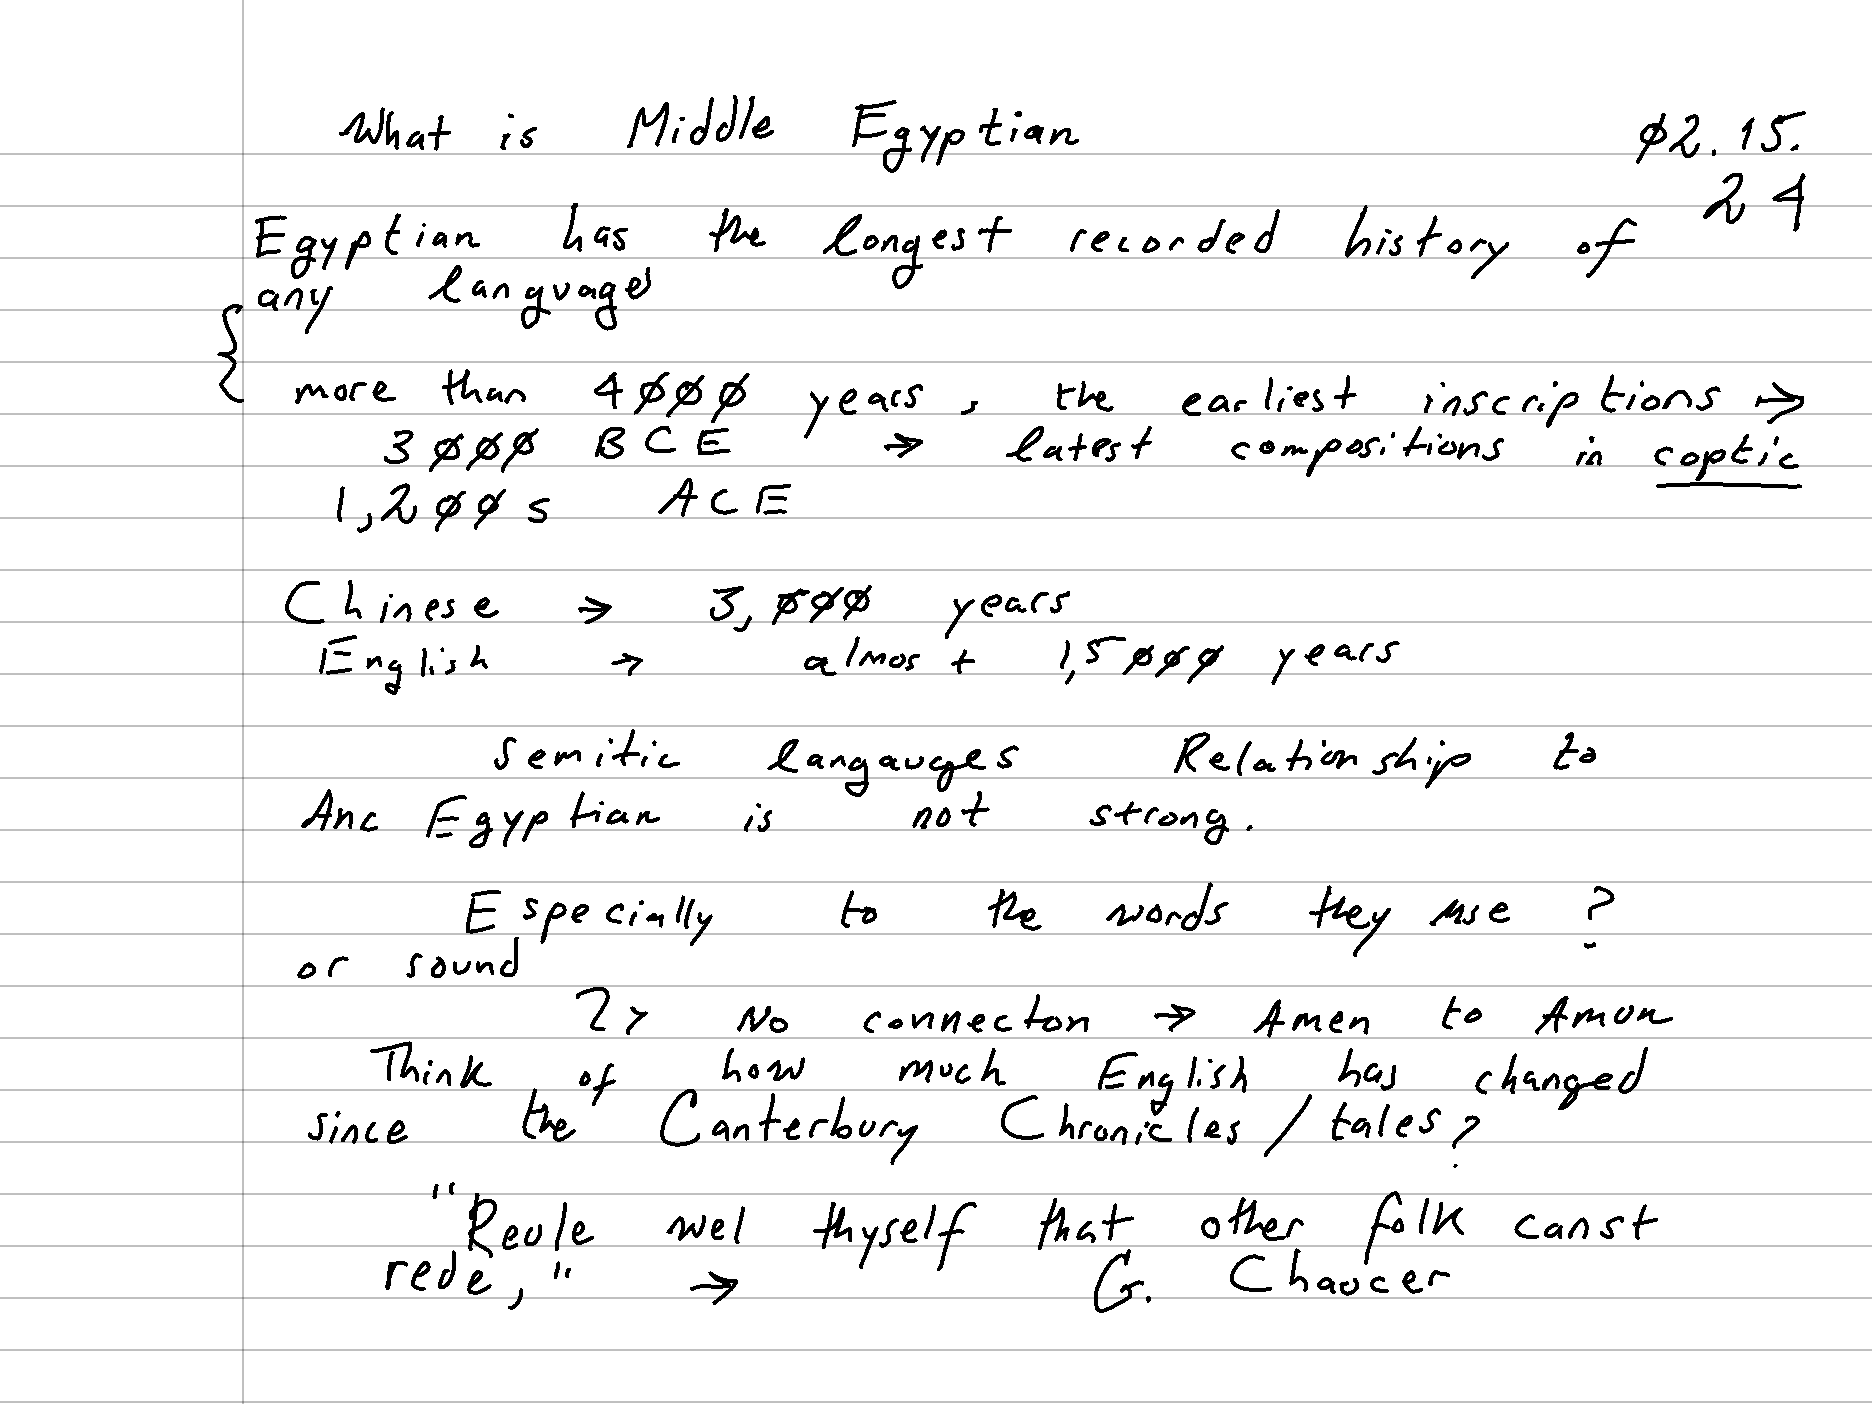 What is Middle Egyptian 02.15.
24
Egyptian has the longest recorded history of
any language
more than 4000 years, the earliest inscriptions →
3000 BCE → latest compositions in coptic
1,200s ACE
Chinese → 3,000 years
English → almost 1,5000 years
Semitic langauges Relationship to
Anc Egyptian is not strong.
Especially to the words they use ?
or sound
?> No connecton → Amen to Amun
Think of how much English has changed
since the Canterbury Chronicles / tales?
"Reule wel thyself that other folk canst
rede," → G. Chaucer